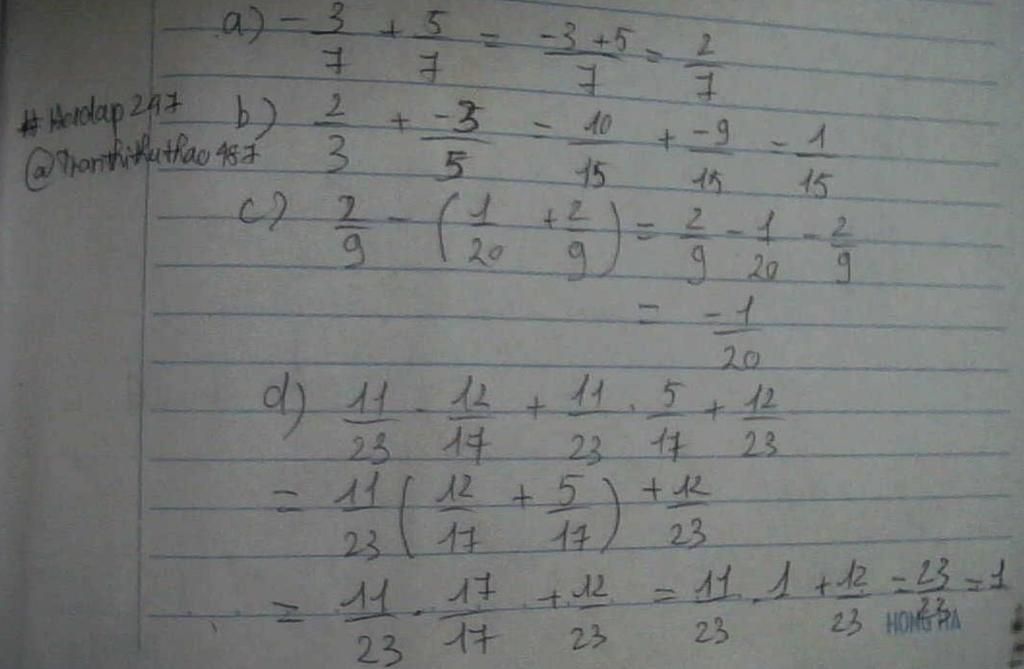 a) -3/7 + 5/7 = -3+5/7 = 2/7
b) 2/3 + -3/5 = 10/15 + -9/15 = 1/15
c) 2/9 - (1/20 + 2/9) = 2/9 - 1/20 - 2/9
= -1/20
d) 11/23 . 12/17 + 11/23 . 5/17 + 12/23
= 11/23 (12/17 + 5/17) + 12/23
= 11/23 . 17/17 + 12/23 = 11/23 . 1 + 12/23 = 23/23 = 1
HONG HA